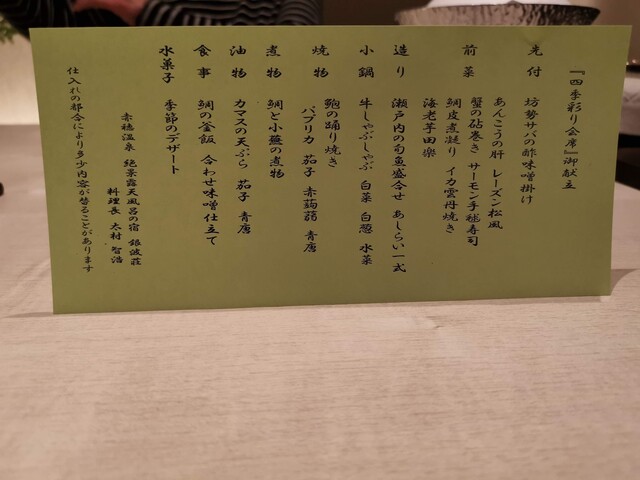 『四季彩り会席』御献立
先付 坊勢サバの酢味噌掛け
あんこうの肝 レーズン松風
前菜 蟹の砧巻き サーモン手毬寿司
鯛皮煮凝り イカ雲丹焼き
海老芋田楽
造り 瀬戸内の旬魚盛合せ あしらい一式
小鍋 牛しゃぶしゃぶ 白菜 白葱 水菜
鮑の踊り焼き
焼物 パプリカ 茄子 赤蒟蒻 青唐
煮物 鯛と小蕪の煮物
油物 カマスの天ぷら 茄子 青唐
食事 鯛の釜飯 合わせ味噌仕立て
水菓子 季節のデザート
赤穂温泉 絶景露天風呂の宿 銀波荘
料理長 太村 智浩
仕入れの都合により多少内容が替ることがあります